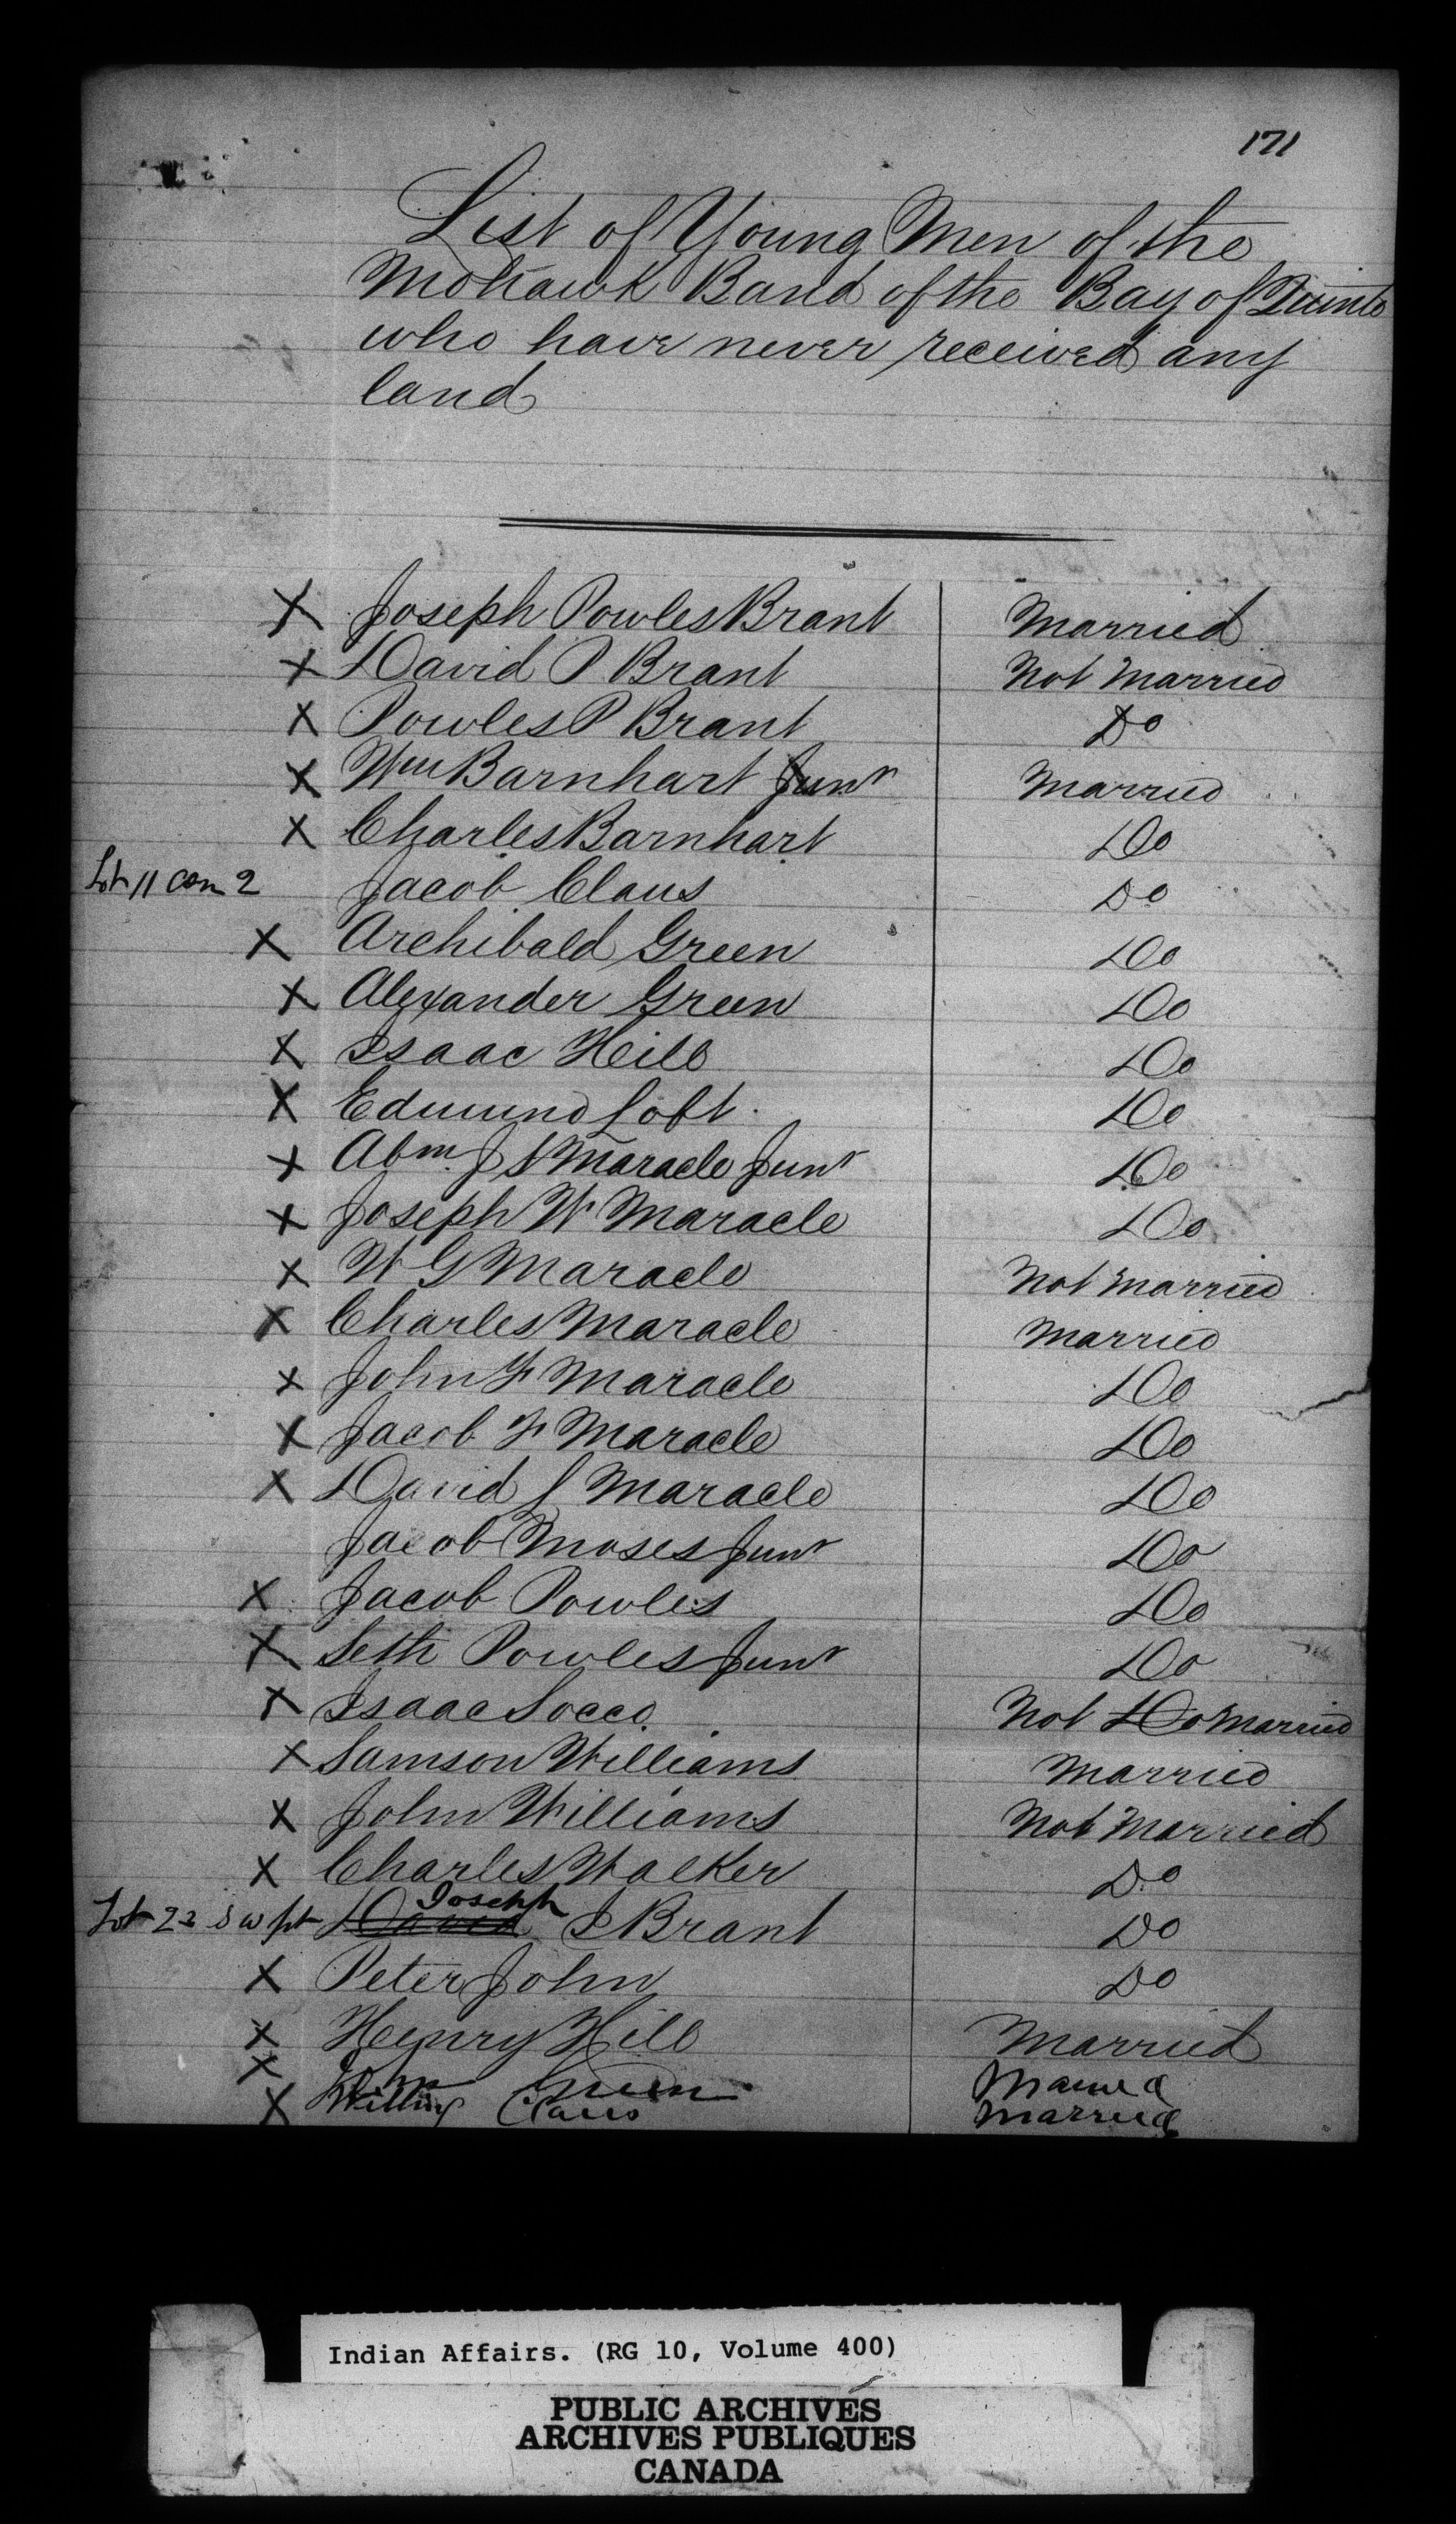 171
List of Young Men of the
Mohawk Band of the Bay of Quinte
who have never received any
land
X Joseph Powles Brant Married
X David P Brant Not Married
X Powles P Brant Do
X Wm Barnhart Junr Married
X Charles Barnhart Do
Lot 11 Con 2 Jacob Claus Do
X Archibald Green Do
X Alexander Green Do
X Isaac Hill Do
X Edmund Loft Do
X Abm J S Maracle Junr Do
X Joseph W Maracle Do
X W G Maracle Not Married
X Charles Maracle Married
X John F Maracle Do
X Jacob F Maracle Do
X David J Maracle Do
Jacob Moses Junr Do
X Jacob Powles Do
X Seth Powles Junr Do
X Isaac Socco Not Do Married
X Samson Williams Married
X John Williams Not Married
X Charles Walker Do
Lot 22 S W pt David Joseph I Brant Do
X Peter John Do
X Henry Hill Married
X Green Married
X William Claus Married
Indian Affairs. (RG 10, Volume 400)
PUBLIC ARCHIVES
ARCHIVES PUBLIQUES
CANADA